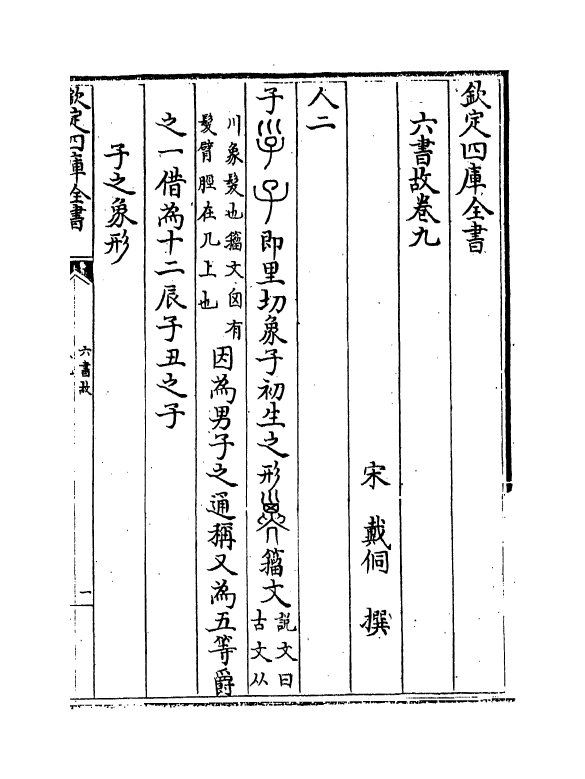 欽定四庫全書
六書故卷九
宋 戴侗 撰
人二
子 即里切象子初生之形 籀文說文曰古文从
川象髮也籀文囟有髮臂脛在几上也因為男子之通稱又為五等爵
之一借為十二辰子丑之子
子之象形
欽定四庫全書
六書故
一